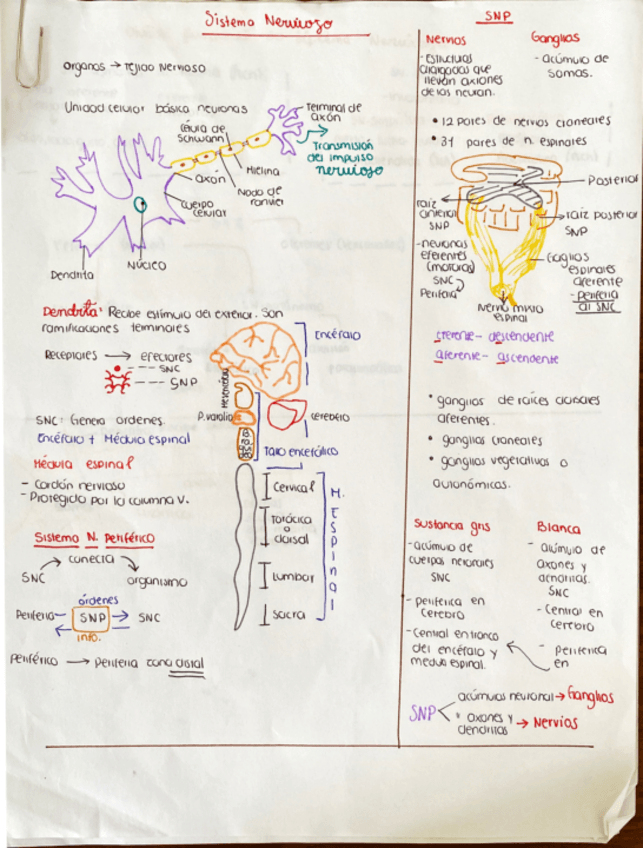 Sistema Nervioso
organos → Tejido Nervioso
Unidad celular básica neuronas
Terminal de axón
célula de schwann
Transmisión del impulso nervioso
Mielina
axón
Nodo de ranvier
cuerpo celular
Núcleo
Dendrita
Dendrita: Recibe estímulo del exterior. Son
ramificaciones terminales
Receptores → efectores
SNC
SNP
Encéfalo
P. varolio
cerebelo
SNC: Genera ordenes.
Encéfalo + Médula espinal
Tallo encefálico
Médula espinal
- Cordón nervioso
- Protegido por la columna V.
Cervical
Torácica
o
dorsal
Lumbar
Sacra
M. Espinal
Sistema N. Periférico
conecta
SNC
organismo
órdenes
Periferia
SNP
SNC
info.
Periférico → Periferia zona distal
SNP
Nervios
- Estructuras
alargadas que
llevan axones
de las neuron.
Ganglios
- acúmulo de
somas.
• 12 pares de nervios craneales
• 31 pares de n. espinales
Posterior
raíz
anterior
SNP
raíz posterior
SNP
- neuronas
eferentes
(motoras)
SNC
Periferia
Ganglios
espinales
aferente
- Periferia
al SNC
Nervio mixto
espinal
eferente - descendente
aferente - ascendente
• ganglios de raíces dorsales
aferentes.
• ganglios craneales
• ganglios vegetativos o
autonómicos.
Sustancia gris
- acúmulo de
cuerpos neuronales
SNC
- Periferica en
cerebro
- Central en tronco
del encéfalo y
medula espinal.
Blanca
- acúmulo de
axones y
dendritas.
SNC
- Central en
cerebro
- Periferica
en
SNP
acúmulos neuronal → Ganglios
• axones y
dendritas → Nervios